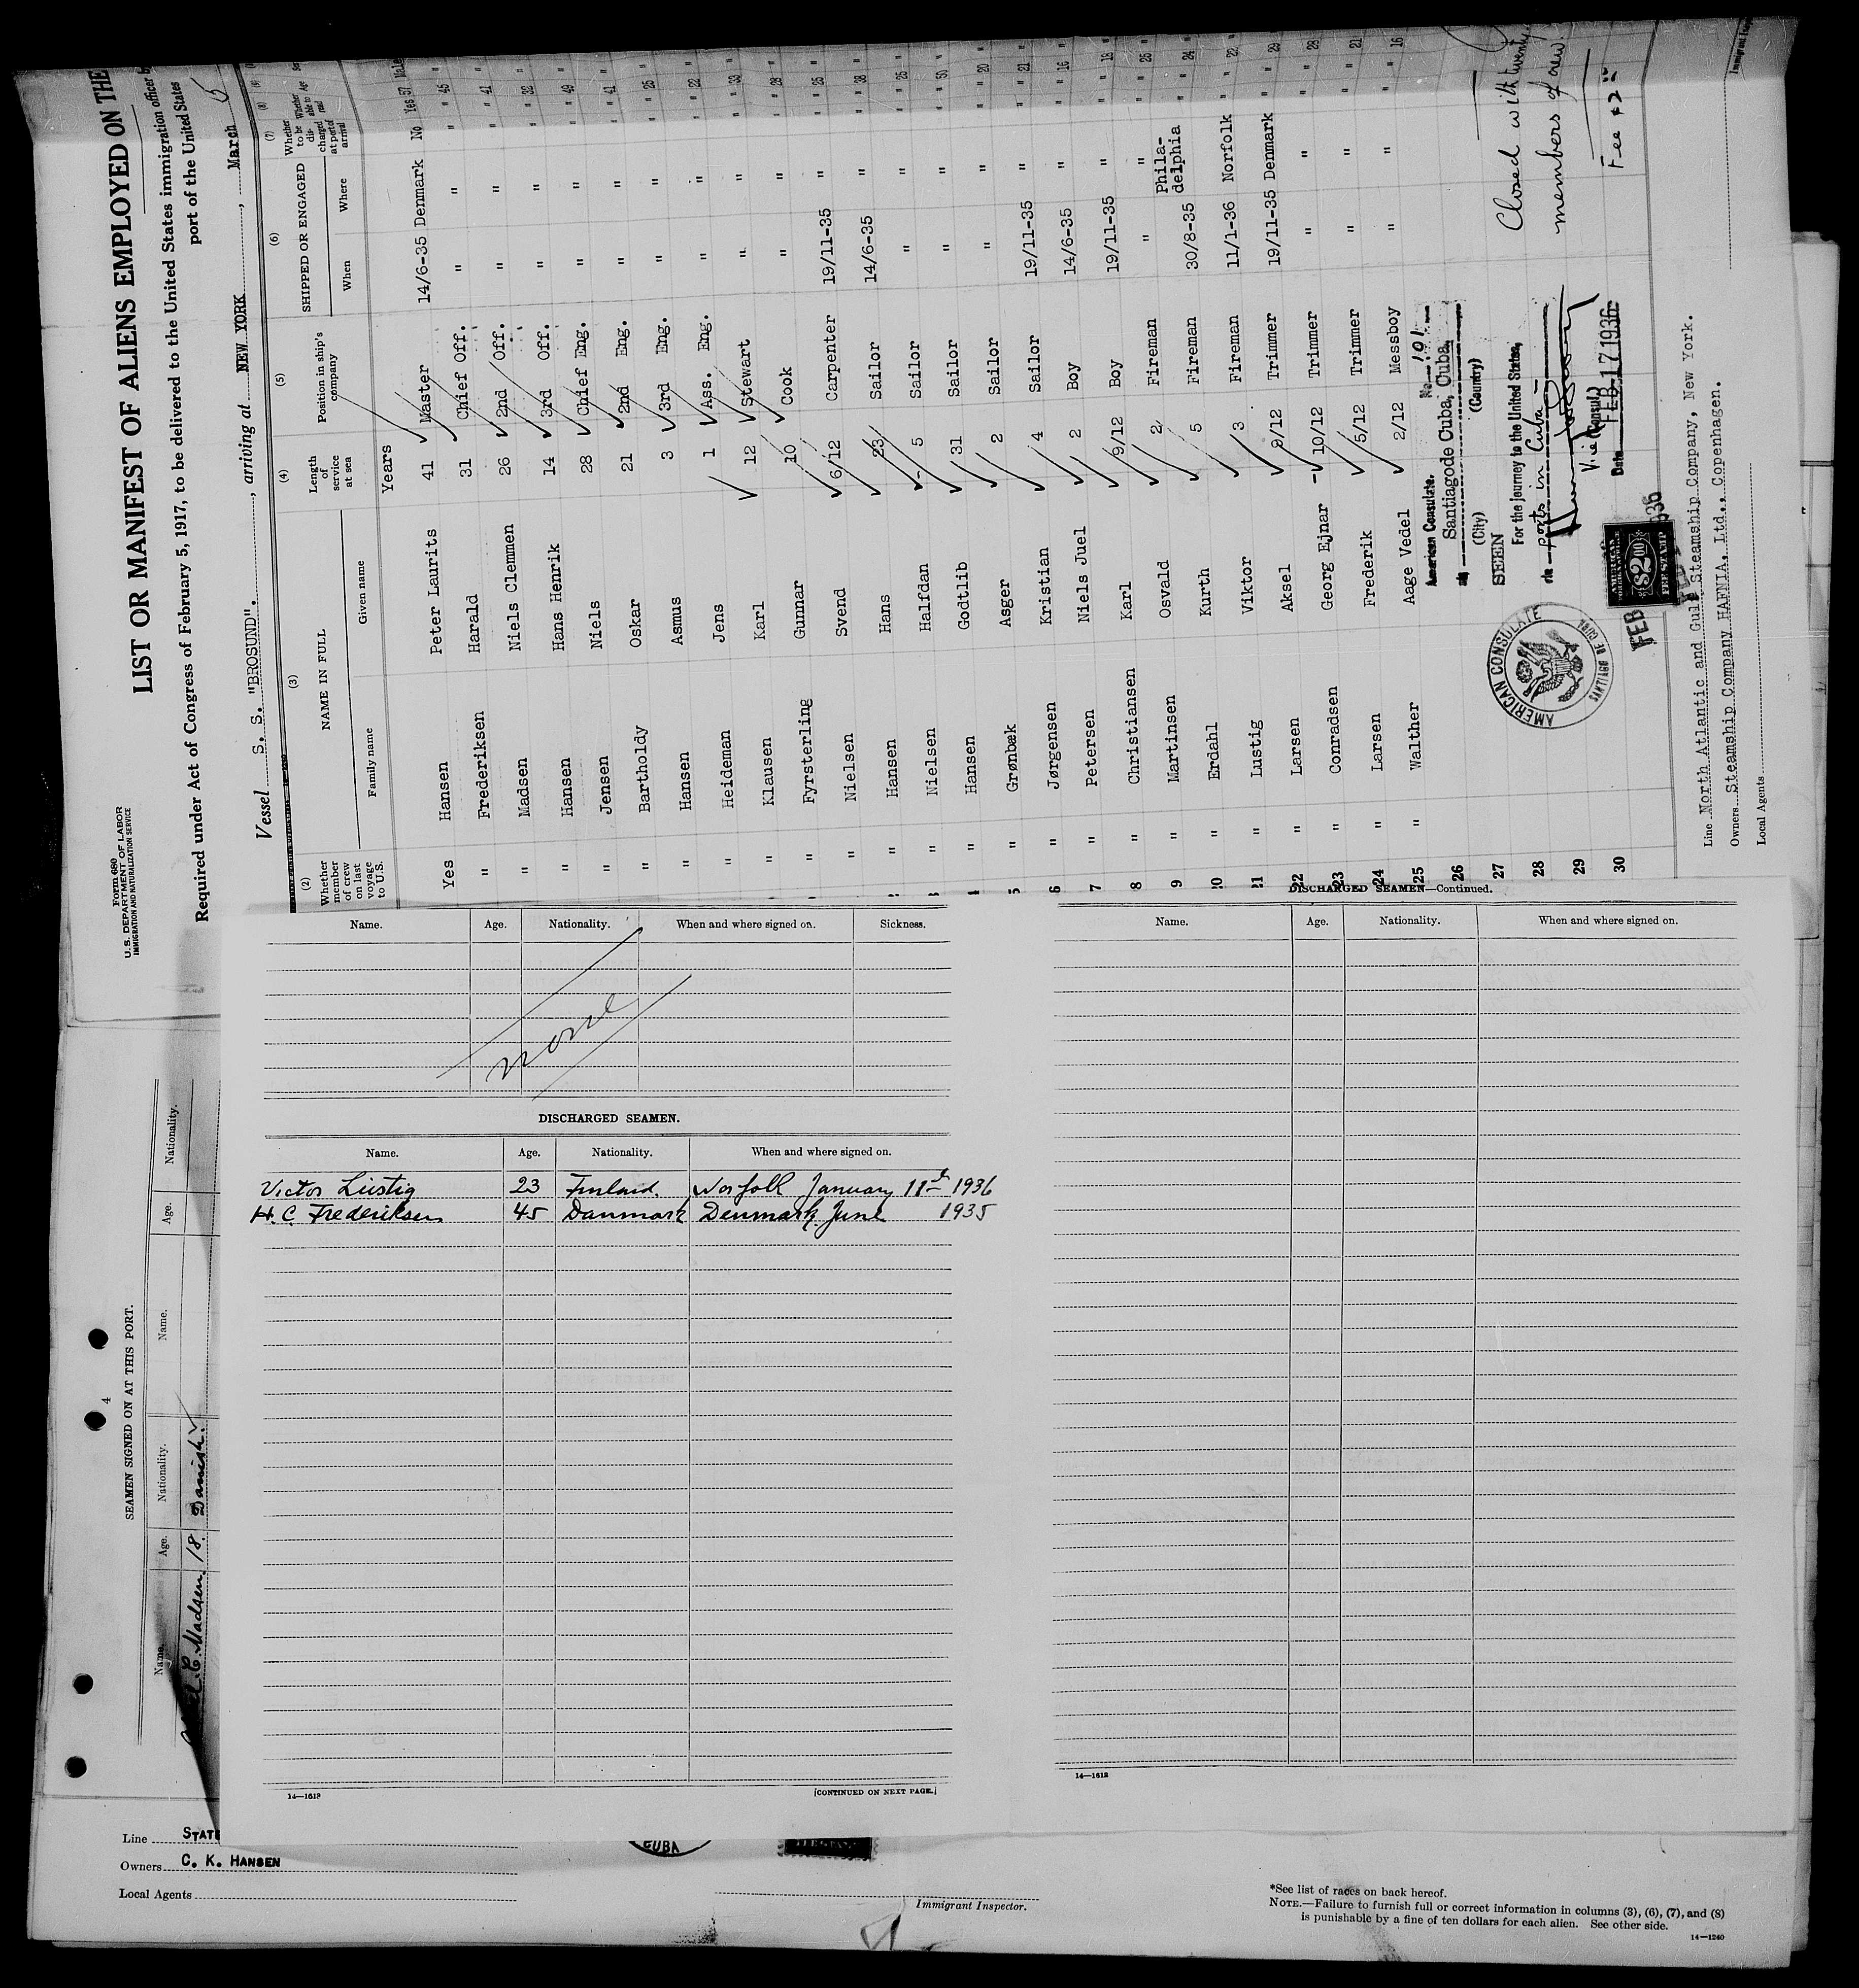 Form 680
U. S. DEPARTMENT OF LABOR
IMMIGRATION AND NATURALIZATION SERVICE
LIST OR MANIFEST OF ALIENS EMPLOYED ON THE
Required under Act of Congress of February 5, 1917, to be delivered to the United States immigration officer
port of the United States
Vessel S. S. "BROSUND"., arriving at NEW YORK, March
(2) (3) (4) (5) (6) (7) (8)
Whether member of crew on last voyage to U.S. NAME IN FULL Length of service at sea Position in ship's company SHIPPED OR ENGAGED Whether to be discharged at port of arrival
Family name Given name When Where
Years
Yes Hansen Peter Laurits 41 Master 14/6-35 Denmark No Yes 57 Male
" Frederiksen Harald 31 Chief Off. " " " " 45 "
" Madsen Niels Clemmen 26 2nd Off. " " " " 41 "
" Hansen Hans Henrik 14 3rd Off. " " " " 32 "
" Jensen Niels 28 Chief Eng. " " " " 49 "
" Bartholdy Oskar 21 2nd Eng. " " " " 41 "
" Hansen Asmus 3 3rd Eng. " " " " 25 "
" Heideman Jens 1 Ass. Eng. " " " " 22 "
" Klausen Karl 12 Stewart " " " " 33 "
" Fyrsterling Gunnar 10 Cook " " " " 28 "
" Nielsen Svend 6/12 Carpenter 19/11-35 " " " 26 "
" Hansen Hans 23 Sailor 14/6-35 " " " 38 "
" Nielsen Halfdan 5 Sailor " " " " 26 "
" Hansen Godtlib 31 Sailor " " " " 50 "
5 " Grønbæk Asger 2 Sailor " " " " 20 "
6 " Jørgensen Kristian 4 Sailor 19/11-35 " " " 21 "
7 " Petersen Niels Juel 2 Boy 14/6-35 " " " 16 "
8 " Christiansen Karl 9/12 Boy 19/11-35 " " " 18 "
9 " Martinsen Osvald 2 Fireman " " " " 25 "
20 " Erdahl Kurth 5 Fireman 30/8-35 Phila-delphia " " 24 "
21 " Lustig Viktor 3 Fireman 11/1-36 Norfolk " " 22 "
22 " Larsen Aksel 9/12 Trimmer 19/11-35 Denmark " " 29 "
23 " Conradsen Georg Ejnar 10/12 Trimmer " " " " 28 "
24 " Larsen Frederik 5/12 Trimmer " " " " 21 "
25 " Walther Aage Vedel 2/12 Messboy " " " " 16 "
26
27
28
29
30
American Consulate. No. 101
at Santiagode Cuba, Cuba,
(City) (Country)
SEEN
For the journey to the United States,
via ports in Cuba
Vice Consul
Date FEB 17 1936
AMERICAN CONSULATE
SANTIAGO DE CUBA
AMERICAN
$2.00
FEE STAMP
FEB
Closed with twenty
members of crew.
Fee $2.00
Line North Atlantic and Gulf Steamship Company, New York.
Owners Steamship Company HAFNIA, Ltd., Copenhagen.
Local Agents
Name. Age. Nationality. When and where signed on. Sickness.
none
DISCHARGED SEAMEN.
Name. Age. Nationality. When and where signed on.
Victor Lustig 23 Finland. Norfolk January 11th 1936
H. C Frederiksen 45 Danmark Denmark June 1935
14—1613
[CONTINUED ON NEXT PAGE.]
DISCHARGED SEAMEN—Continued.
Name. Age. Nationality. When and where signed on.
14—1613
4
SEAMEN SIGNED ON AT THIS PORT.
Name. Age. Nationality. Name. Age. Nationality.
C. Madsen 18. Danish
Line STATE
Owners C. K. HANSEN
Local Agents
CUBA
Immigrant Inspector.
*See list of races on back hereof.
NOTE.—Failure to furnish full or correct information in columns (3), (6), (7), and (8)
is punishable by a fine of ten dollars for each alien. See other side.
14—1240